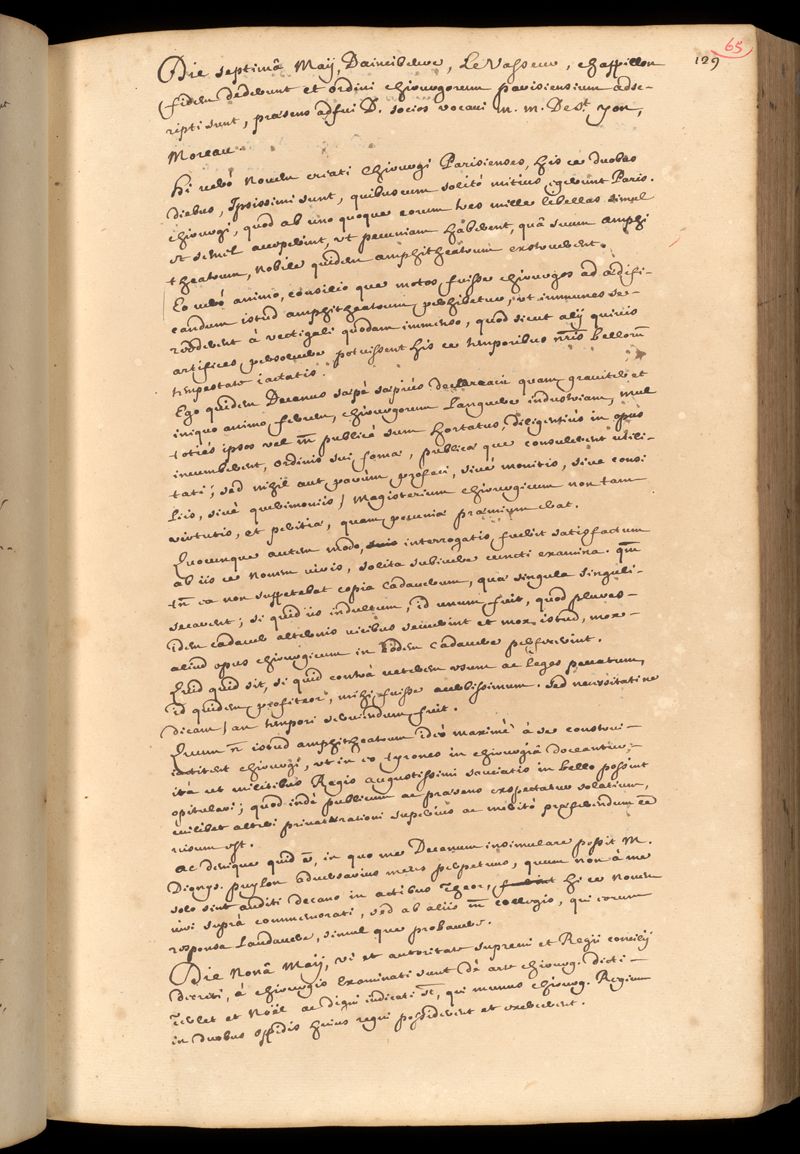 65
129
Die septimâ Maij, Daincibeleve, Le Vasseur, chaspillon
fidem dederunt et ordini chirurgorum parisiensium adsc-
ripti sunt, præsens adfui D. socios vocavi m. m. De St yon,
Moreau.
Hi verò Novem criati Chirurgi Parisienses, his ce duobus
diebus, Ipsissimi sunt, quibuscum solitò mitius egerunt Paris.
chirurgi, quod ab uno quoque eorum tres mille libellas simul
et semel acceperint, ut pecuniam haberent, quâ suum amphi
theatrum, nobile quidem amphitheatrum exstruerent.
Eo verò animo, consilio que motos fuisse chirurgos ad ædifi-
candum istud amphitheatrum perhibetur, ut immunes se-
redderent à vectigali quodam immenso, quod sicut alij quivis
artifices, persolvere potuissent his ce temporibus nris bellorū
tempestate iactatis.
Ego quidem Decanus sæpè sæpius declaravi quam graviter et
iniquo animo ferrem, chirurgorum Languere industriam, mul
toties ipsos vel publicè sum hortatus, diligentiùs in opus
incumberent, ordinis sui fama, publica que consulerent utili-
tati; sed nihil aut parùm profeci, sivè monitis, sive consi
liis, sivè querimoniis / Magisterium chirurgicum non tam
virtutis, et peritiæ, quam pecuniæ præmium erat.
Quocunque autem modo, interrogatis, fuerit satisfactum
ab iis ce Novem viris, solita subivere cuncti examina. qm
tn ea non suppetebat copia cadaverum, quæ singula singuli-
secarent; si quid iis indultum, id unum fuit, quod plures-
idem cadaver alternis vicibus sciderint et mox istud, mox-
aliud opus chirurgicum in eodem cadavere perfecerint.
Quid quid sit, si quid contrà veterem usum ac leges peccatum,
id quidem profiteor, mihi fuisse acerbissimum. sed necessitati ne
dicam / an tempori serviendum fuit.
Quum n istud amphitheatrum ideò maximè à se construi-
iactitent chirurgi, ut in eo tyrones in chirurgiâ doceantur,-
ità ut militibus Regis augustissimi sauciatis in bello possint
opitulari; quod indè publicum ac præsens exspectatur solatium,
cuilibet alteri privatæ rationi superius ac meritò præferendum ce
risum est.
ac denique quid ē, in quo me Decanum insimulare possit M.
Dionys. puylon adversarius meus perpetuus, quum non à me
solo sint auditi decano in actibus theor, hi ce Novem
viri suprà commemorati, sed ab aliis collegis, qui eorum
responsa Laudavere, simul que probavere.
Die Nonâ Maij, vi et autoritate supremi et Regii concilij
decreti, à chirurgis Examinati sunt de arte chirurg. dicti-
Teblet et Noël ac digni indicati st, qui munus chirurg. Regium
in duobus oppidis huius regni possiderent et exercerent.